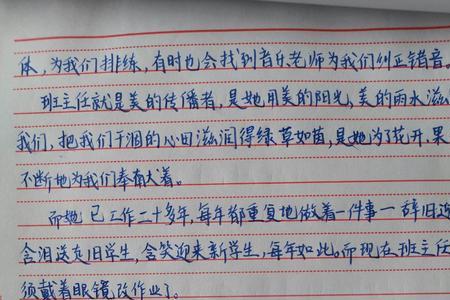 体,为我们排练,有时也会找到音乐老师为我们纠正错音。
班主任就是美的传播者,是她用美的阳光,美的雨水滋
我们,把我们干涸的心田滋润得绿草如茵,是她为了花开、果
不断地为我们奉献着。
而她已工作二十多年,每年都重复地做着一件事—辞旧迎
含泪送走旧学生,含笑迎来新学生,每年如此。而现在班主任
须戴着眼镜改作业了。